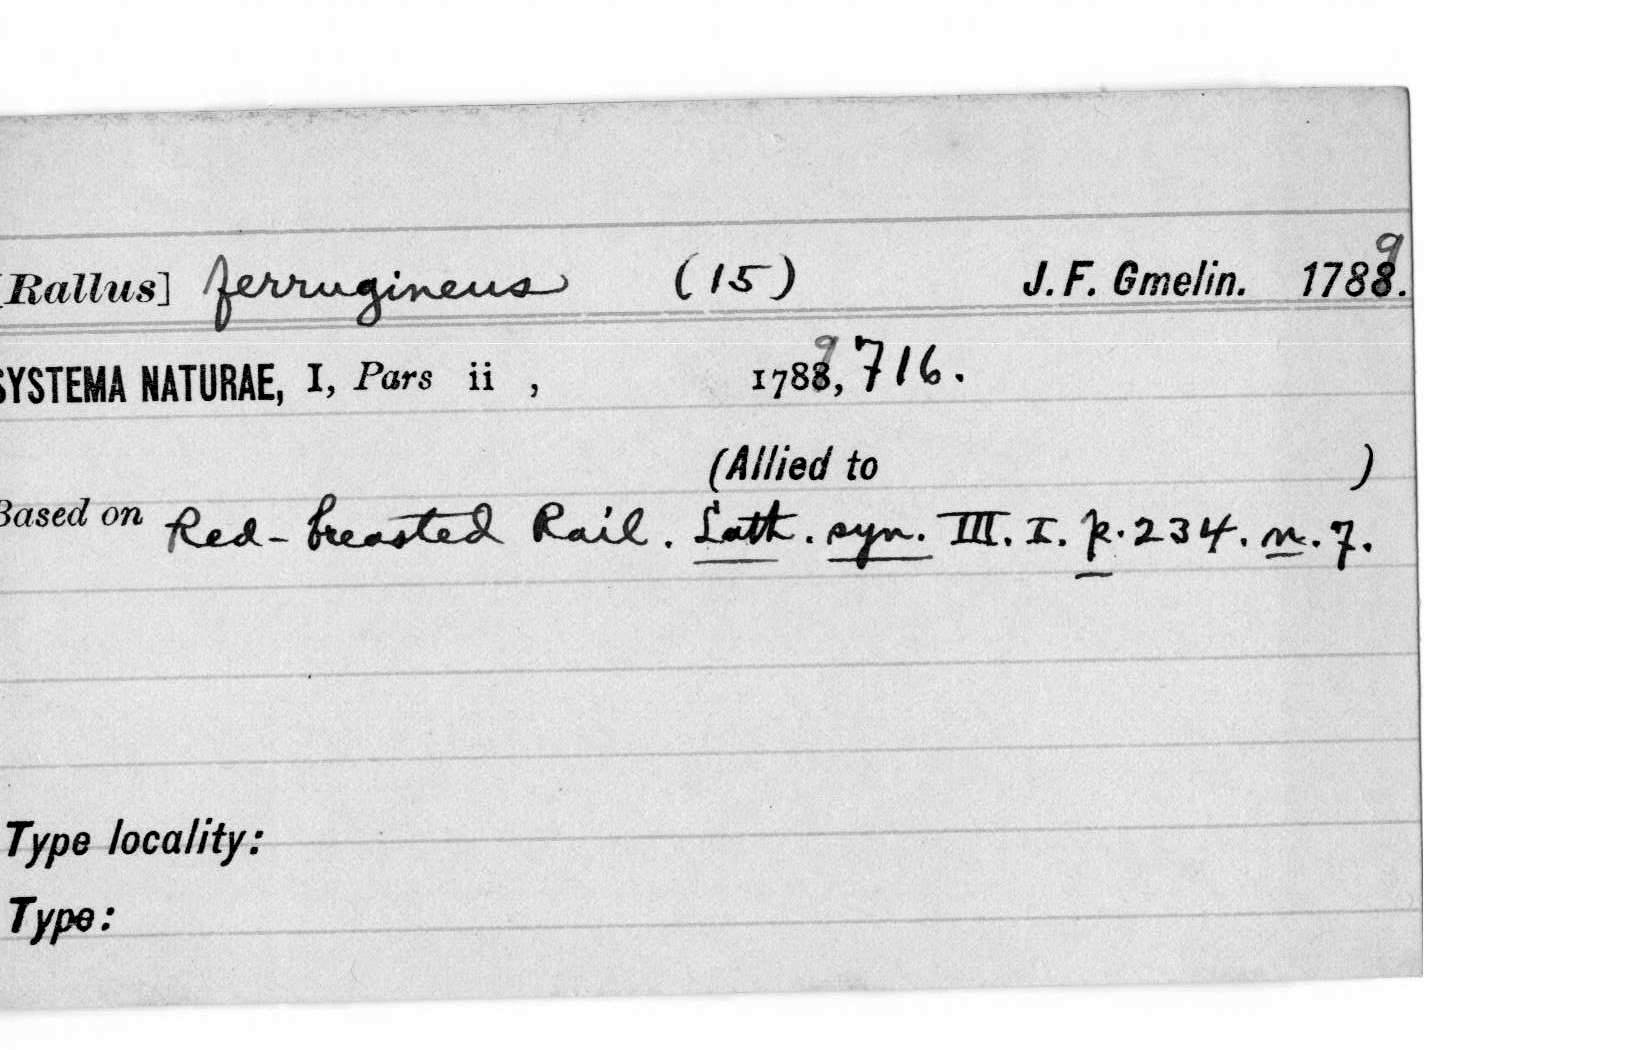 [Rallus] ferrugineus (15) J. F. Gmelin. 1789.
SYSTEMA NATURAE, I, Pars ii , 1789, 716.
(Allied to )
Based on Red-breasted Rail. Lath. syn. III. I. p. 234. n. 7.
Type locality:
Type: